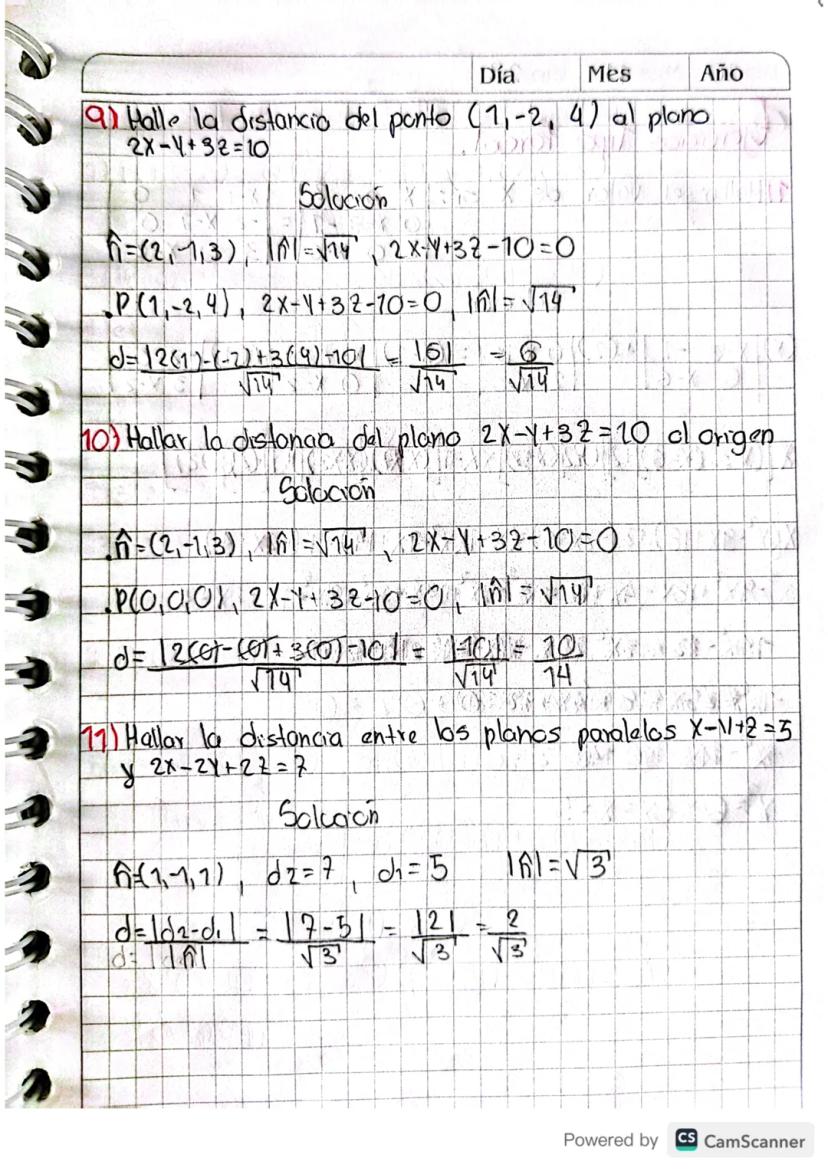 Día Mes Año
9) Halle la distancia del punto (1,-2, 4) al plano
2x-y+3z=10
Solución
n̂=(2,-1,3), |n̂|=√14, 2x-y+3z-10=0
.P(1,-2,4), 2x-y+3z-10=0, |n̂|=√14
d=|2(1)-(-2)+3(4)-10|/√14 = |6|/√14 = 6/√14
10) Hallar la distancia del plano 2x-y+3z=10 al origen
Solución
.n̂=(2,-1,3), |n̂|=√14, 2x-y+3z-10=0
.P(0,0,0), 2x-y+3z-10=0, |n̂|=√14
d=|2(0)-(0)+3(0)-10|/√14 = |-10|/√14 = 10/14
11) Hallar la distancia entre los planos paralelos x-y+z=5
y 2x-2y+2z=7
Solución
n̂=(1,-1,1), d2=7, d1=5 |n̂|=√3
d=|d2-d1|/|n̂| = |7-5|/√3 = |2|/√3 = 2/√3
Powered by CS CamScanner